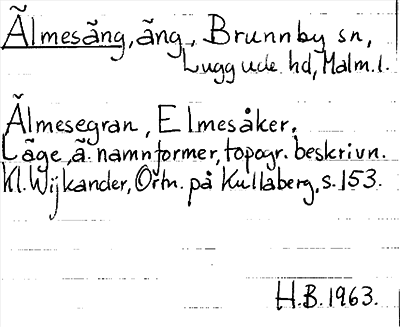 Älmesäng, äng, Brunnby sn,
Luggude hd, Malm. l.
Älmesegran, Elmesåker.
Läge, ä. namnformer, topogr. beskrivn.
Kl. Wijkander, Ortn. på Kullaberg, s. 153.
H.B. 1963.